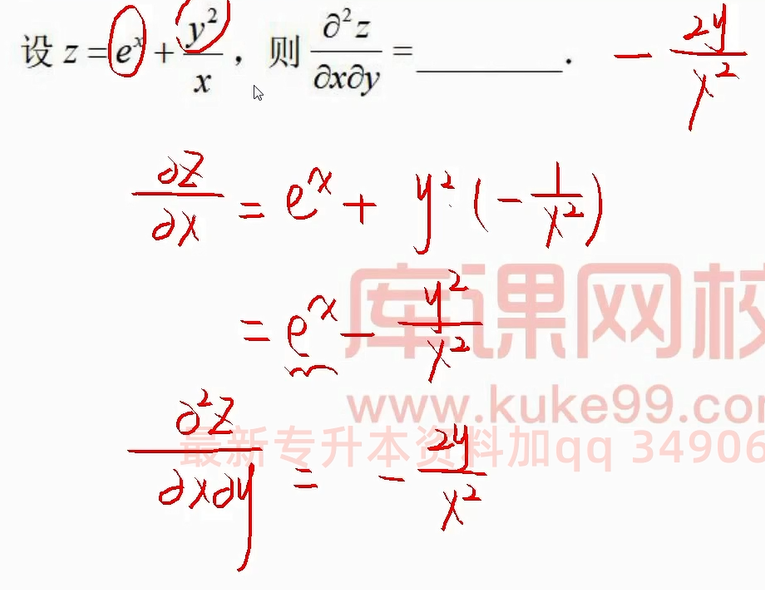 设 z = e^x + y²/x ，则 ∂²z/∂x∂y = ________ . − 2y/x²
∂z/∂x = e^x + y² · (− 1/x²)
= e^x − y²/x²
∂²z/∂x∂y = − 2y/x²
库课网校
www.kuke99.co
最新专升本资料加qq 34906